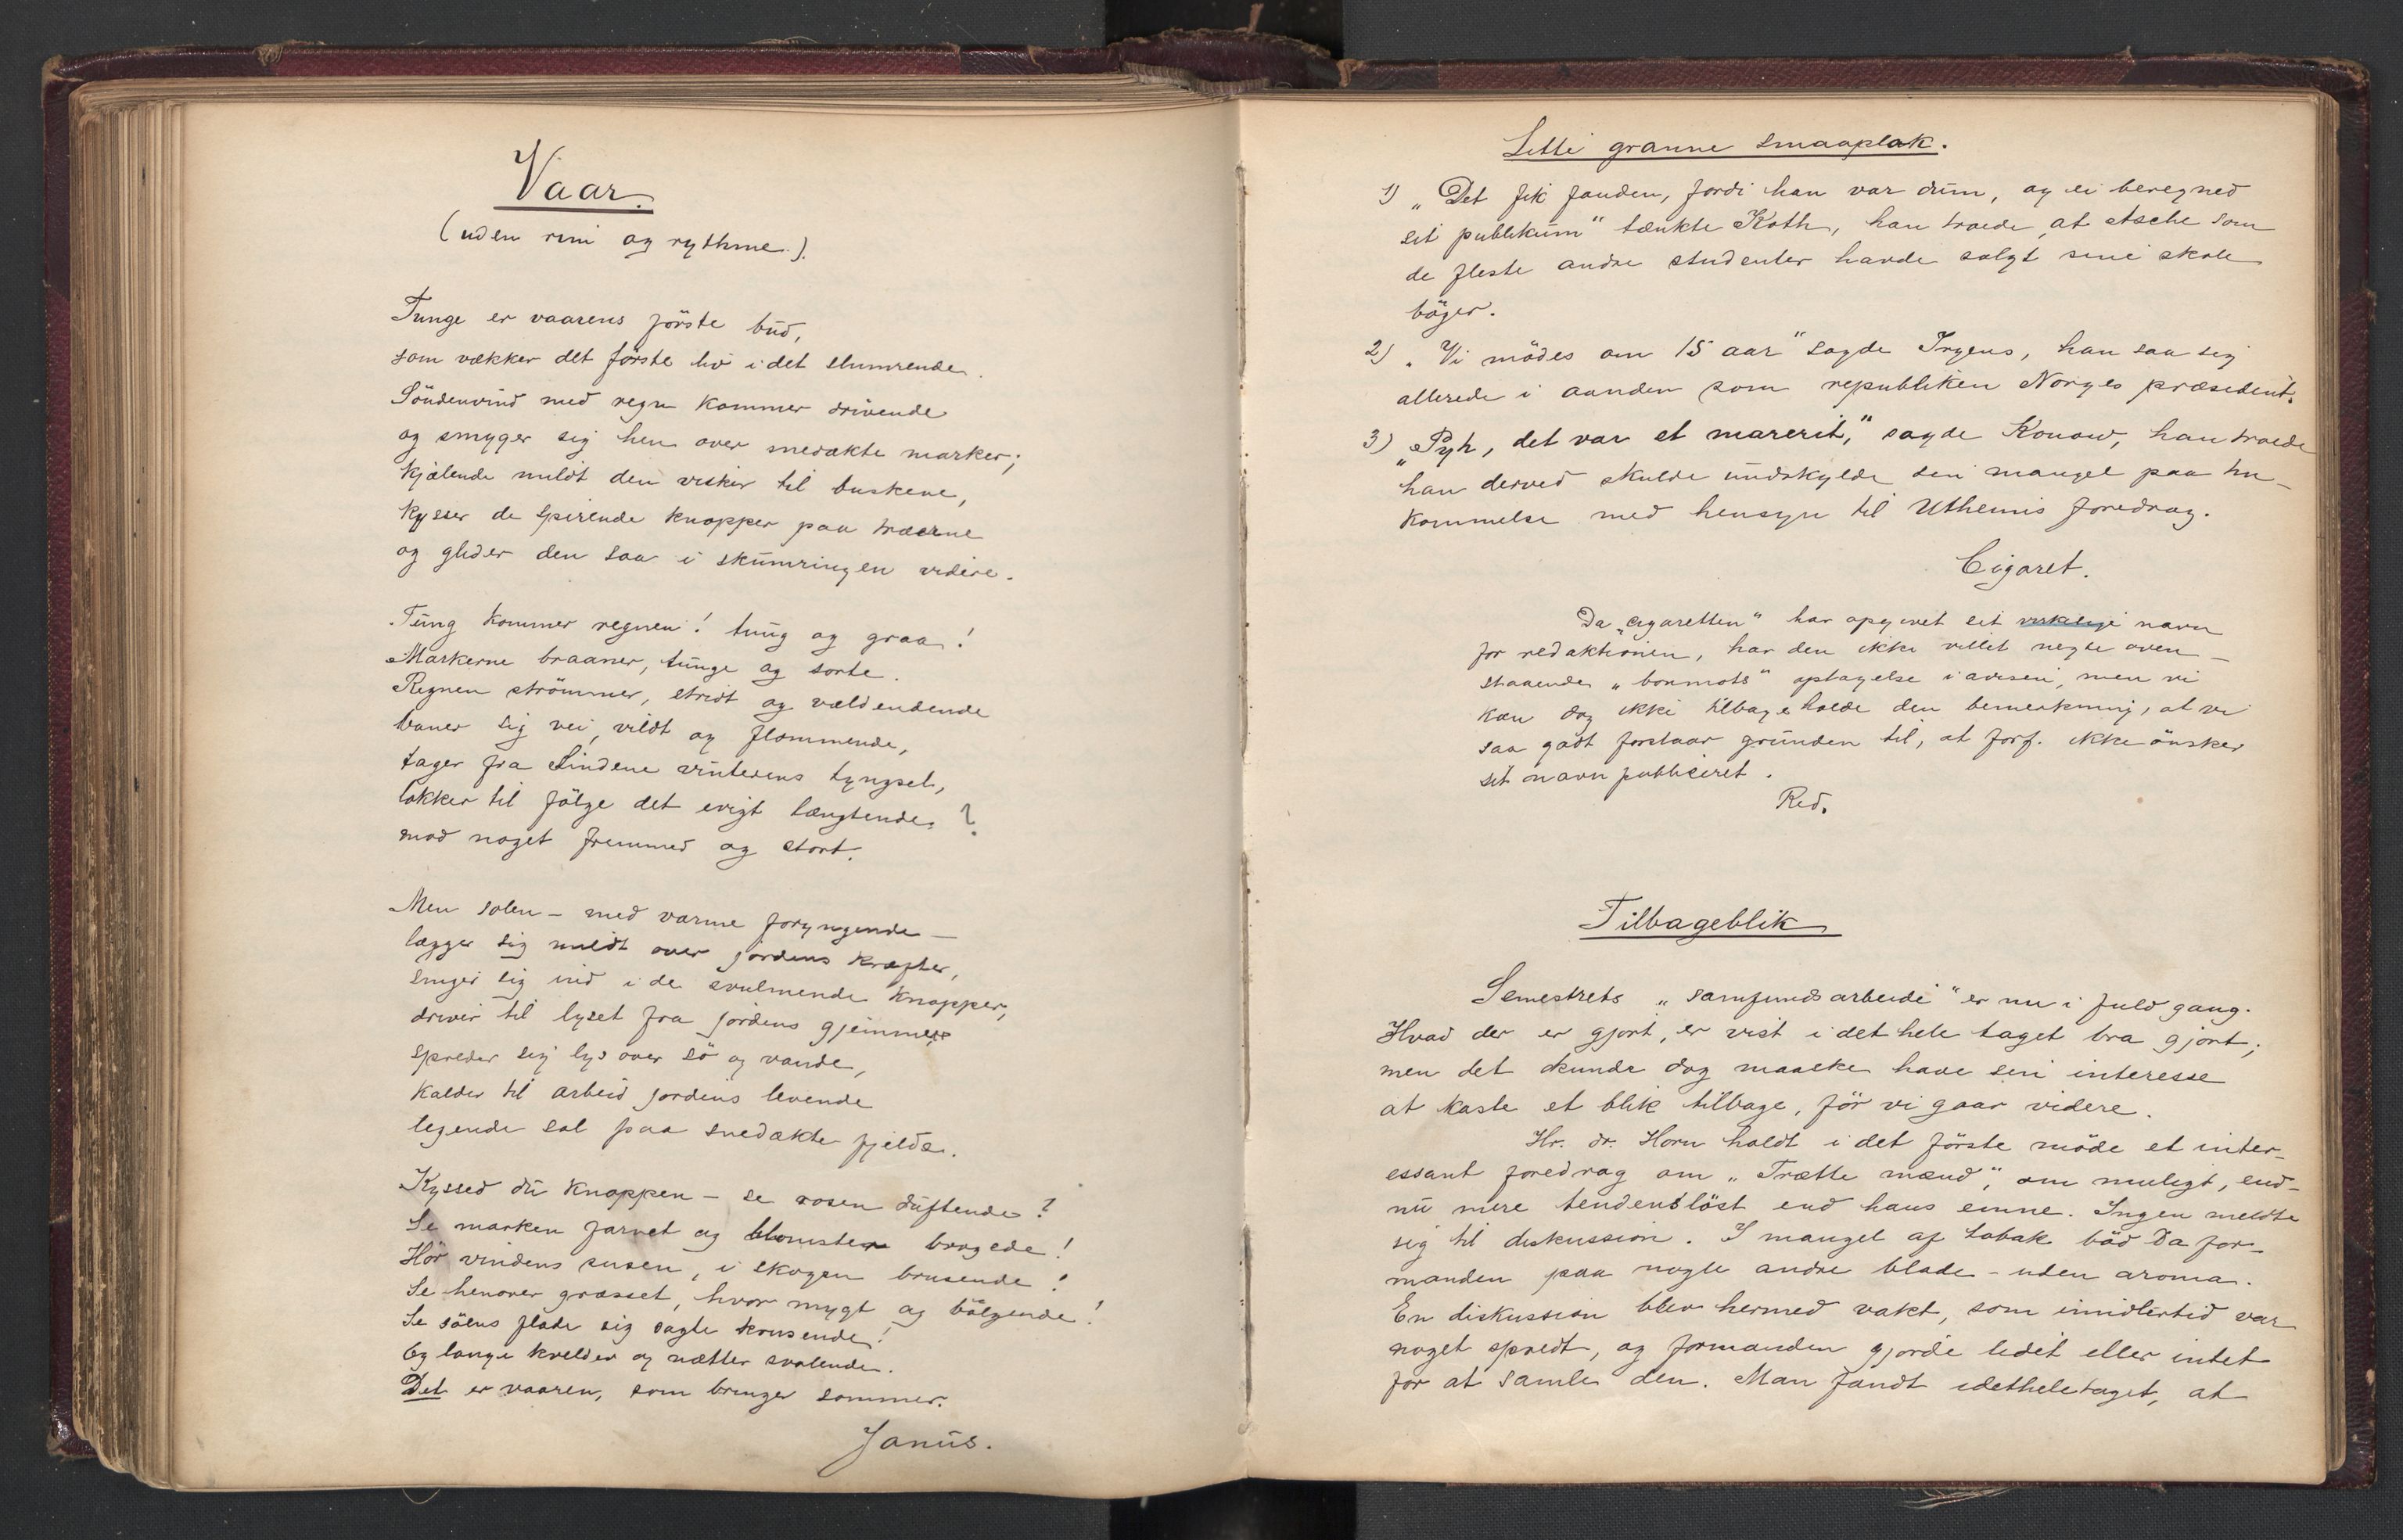 Vaar.
(uden rim og rythme.)
Tunge er vaarens förste bud,
som vækker det förste liv i det slumrende.
Söndenvind med regn kommer drivende
og smyger sig hen over snedækte marker;
kjælende mildt den visker til buskene,
kysser de spirende knopper paa træerne
og glider den saa i skumringen videre.
Tung kommer regnen! tung og graa!
Markerne braaner, tunge og sorte.
Regnen strömmer, stridt og vældendende
baner sig vei, vildt og flommende,
tager fra sindene vinterens tyngsel,
lokker til fölge det evigt længtende, ?
mod noget fremmed og stort.
Men solen – med varme foryngende –
lægger sig mildt over jordens kræfter,
sniger sig ind i de svulmende knopper,
driver til lyset fra jordens gjemmer
spreder sig lys over sö og vande,
kalder til arbeid jordens levende
legende sol paa snedækte fjelde.
Kyssed du knoppen – se rosen duftende?
Se marken farvet og blomster brogede!
Hör vindens susen, i skogen brusende!
Se henover græsset, hvor mygt og bölgende!
Se söens flade sig sagte krusende!
Og lange kvelder og nætter svalende.
Det er vaaren, som bringer sommer.
Janus.
Litte granne smaaplak.
1) „Det fik fanden, fordi han var dum, og ei beregned
sit publikum" tænkte Koth, han troede, at Asche som
de fleste andre studenter havde solgt sine skole
böger.
2) „Vi mödes om 15 aar" sagde Irgens, han saa sig
allerede i aanden som republiken Norges præsident.
3) „Pyh, det var et marerit," sagde Konow, han troede
han derved skulde undskylde sin mangel paa hu-
kommelse med hensyn til Uthemis foredrag.
Cigaret.
Da „cigaretten" har opgivet sit virkelige navn
for redaktionen, har den ikke villet negte oven-
staaende „bonmots" optagelse i avisen, men vi
kan dog ikke tilbageholde den bemerkning, at vi
saa godt forstaar grunden til, at forf. ikke önsker
sit navn publiceret.
Red.
Tilbageblik
Semestrets „samfundsarbeide" er nu i fuld gang.
Hvad der er gjort, er vist i det hele taget bra gjort;
men det kunde dog maaske have sin interesse
at kaste et blik tilbage, för vi gaar videre.
Hr. dr. Horn holdt i det förste möde et inter-
essant foredrag om „Trætte mænd", om muligt, end-
nu mere tendenslöst end hans emne. Ingen meldte
sig til diskussion. I mangel af tobak böd da for-
manden paa nogle andre blade – uden aroma.
En diskussion blev hermed vakt, som imidlertid var
noget spredt, og formanden gjorde lidet eller intet
for at samle den. Man fandt idetheletaget, at